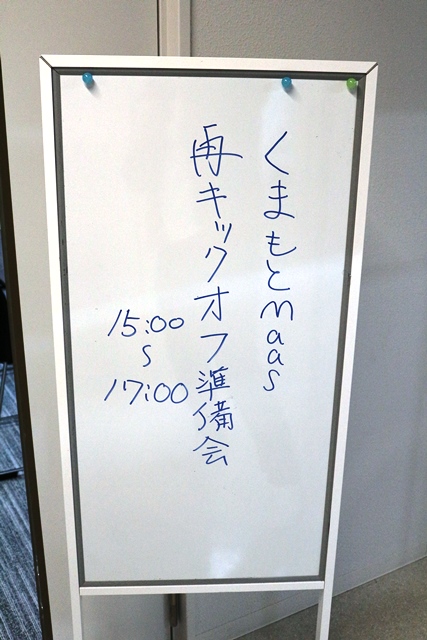 くまもとmaas
再キックオフ準備会
15:00
~
17:00